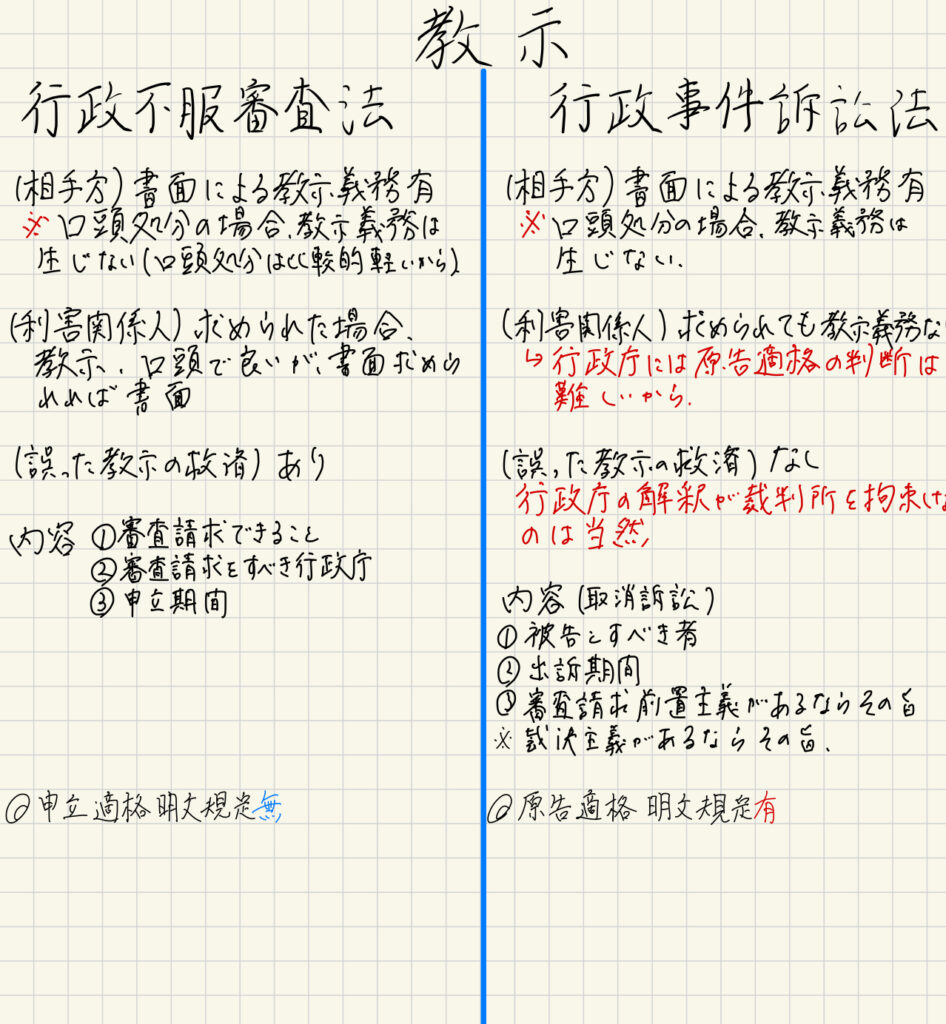 教示
行政不服審査法
(相手方)書面による教示義務有
※口頭処分の場合、教示義務は
生じない(口頭処分は比較的軽いから)
(利害関係人)求められた場合、
教示、口頭で良いが、書面求めら
れれば書面
(誤った教示の救済)あり
内容 ①審査請求できること
②審査請求をすべき行政庁
③申立期間
◎申立適格明文規定無
行政事件訴訟法
(相手方)書面による教示義務有
※口頭処分の場合、教示義務は
生じない.
(利害関係人)求められても教示義務な
↳行政庁には原告適格の判断は
難しいから.
(誤った教示の救済)なし
行政庁の解釈が裁判所を拘束しな
のは当然
内容(取消訴訟)
①被告とすべき者
②出訴期間
③審査請求前置主義があるならその旨
※裁決主義があるならその旨.
◎原告適格 明文規定有